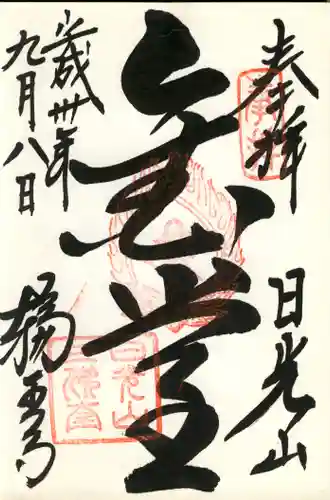 奉拝
日光山
金堂
平成卅年
九月八日
輪王寺
日光山
三佛堂